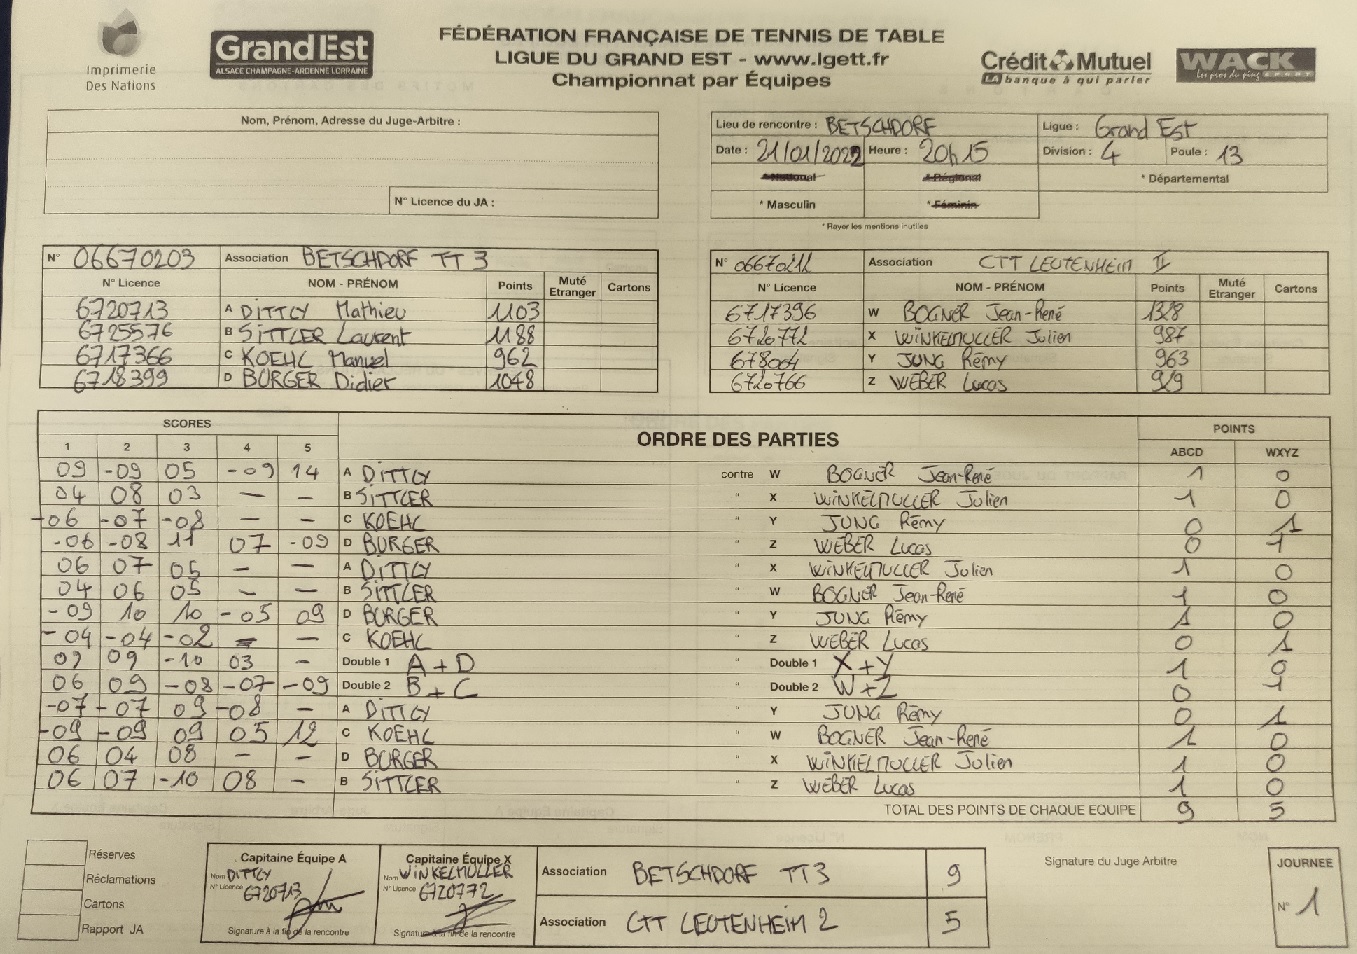 Imprimerie
Des Nations
GrandEst
ALSACE CHAMPAGNE-ARDENNE LORRAINE
FÉDÉRATION FRANÇAISE DE TENNIS DE TABLE
LIGUE DU GRAND EST - www.lgett.fr
Championnat par Équipes
Crédit Mutuel
LA banque à qui parler
WACK
SPORT
Nom, Prénom, Adresse du Juge-Arbitre :
N° Licence du JA :
Lieu de rencontre : BETSCHDORF Ligue : Grand Est
Date : 21/01/2022 Heure : 20h15 Division : 4 Poule : 13
* National * Régional * Départemental
* Masculin * Féminin
* Rayer les mentions inutiles
N° 06670203 Association BETSCHDORF TT 3
N° Licence NOM - PRÉNOM Points Muté Etranger Cartons
6720713 A DITTLY Mathieu 1103
6725576 B SITTLER Laurent 1188
6717366 C KOEHL Manuel 962
6718399 D BURGER Didier 1048
N° 06670212 Association CTT LEUTENHEIM II
N° Licence NOM - PRÉNOM Points Muté Etranger Cartons
6717396 W BOGNER Jean-René 1328
6720772 X WINKELMULLER Julien 987
678064 Y JUNG Rémy 963
6720766 Z WEBER Lucas 929
SCORES ORDRE DES PARTIES POINTS
1 2 3 4 5 ABCD WXYZ
09 -09 05 -09 14 A DITTLY contre W BOGNER Jean-René 1 0
04 08 03 — — B SITTLER " X WINKELMULLER Julien 1 0
-06 -07 -08 — — C KOEHL " Y JUNG Rémy 0 1
-06 -08 11 07 -09 D BURGER " Z WEBER Lucas 0 1
06 07 05 — — A DITTLY " X WINKELMULLER Julien 1 0
04 06 05 — — B SITTLER " W BOGNER Jean-René 1 0
-09 10 10 -05 09 D BURGER " Y JUNG Rémy 1 0
-04 -04 -02 — — C KOEHL " Z WEBER Lucas 0 1
09 -10 03 — Double 1 A+D " Double 1 X+Y 1 0
06 09 -08 -07 -09 Double 2 B+C " Double 2 W+Z 0 1
-07 -07 09 -08 — A DITTLY " Y JUNG Rémy 0 1
-09 -09 09 05 12 C KOEHL " W BOGNER Jean-René 1 0
06 04 08 — — D BURGER " X WINKELMULLER Julien 1 0
06 07 -10 08 — B SITTLER " Z WEBER Lucas 1 0
TOTAL DES POINTS DE CHAQUE EQUIPE 9 5
Réserves
Réclamations
Cartons
Rapport JA
Capitaine Équipe A
Nom DITTLY
N° Licence 6720713
Signature à la fin de la rencontre
Capitaine Équipe X
Nom WINKELMULLER
N° Licence 6720772
Signature à la fin de la rencontre
Association BETSCHDORF TT3 9
Association CTT LEUTENHEIM 2 5
Signature du Juge Arbitre
JOURNEE
N° 1